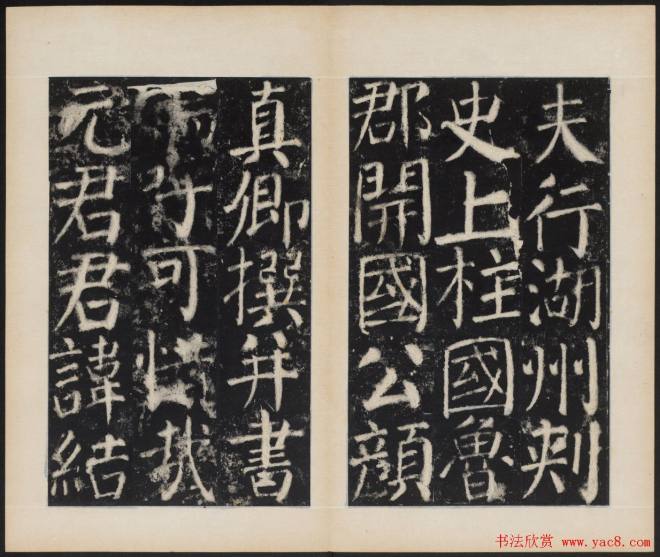 夫行湖州刺
史上柱國魯
郡開國公顔
真卿撰并書
可惜哉
元君君諱結
书法欣赏 www.yac8.com